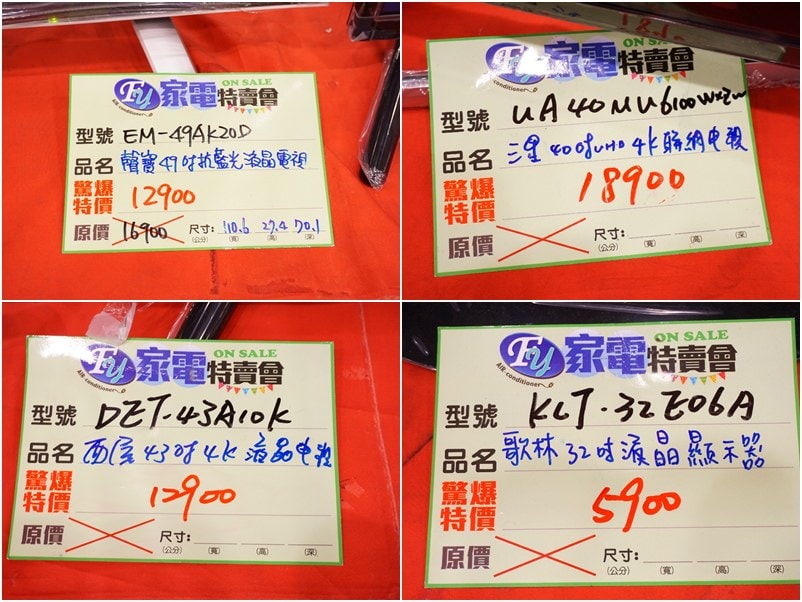 FU 家電特賣會 ON SALE
Air-conditioner
型號 EM-49AK20D
品名 聲寶49吋抗藍光液晶電視
驚爆特價 12900
原價 16900 尺寸: 110.6 27.4 70.1
(公分) (寬) (高) (深)
FU 家電特賣會 ON SALE
Air-conditioner
型號 UA40MU6100WXZW
品名 三星40吋UHD 4K聯網电視
驚爆特價 18900
原價 尺寸:
(公分) (寬) (高) (深)
FU 家電特賣會 ON SALE
Air-conditioner
型號 DET-43A10K
品名 西屋43吋4K液晶电視
驚爆特價 12900
原價 尺寸:
(公分) (寬) (高) (深)
FU 家電特賣會 ON SALE
Air-conditioner
型號 KLT-32E06A
品名 歌林32吋液晶顯示器
驚爆特價 5900
原價 尺寸:
(公分) (寬) (高) (深)